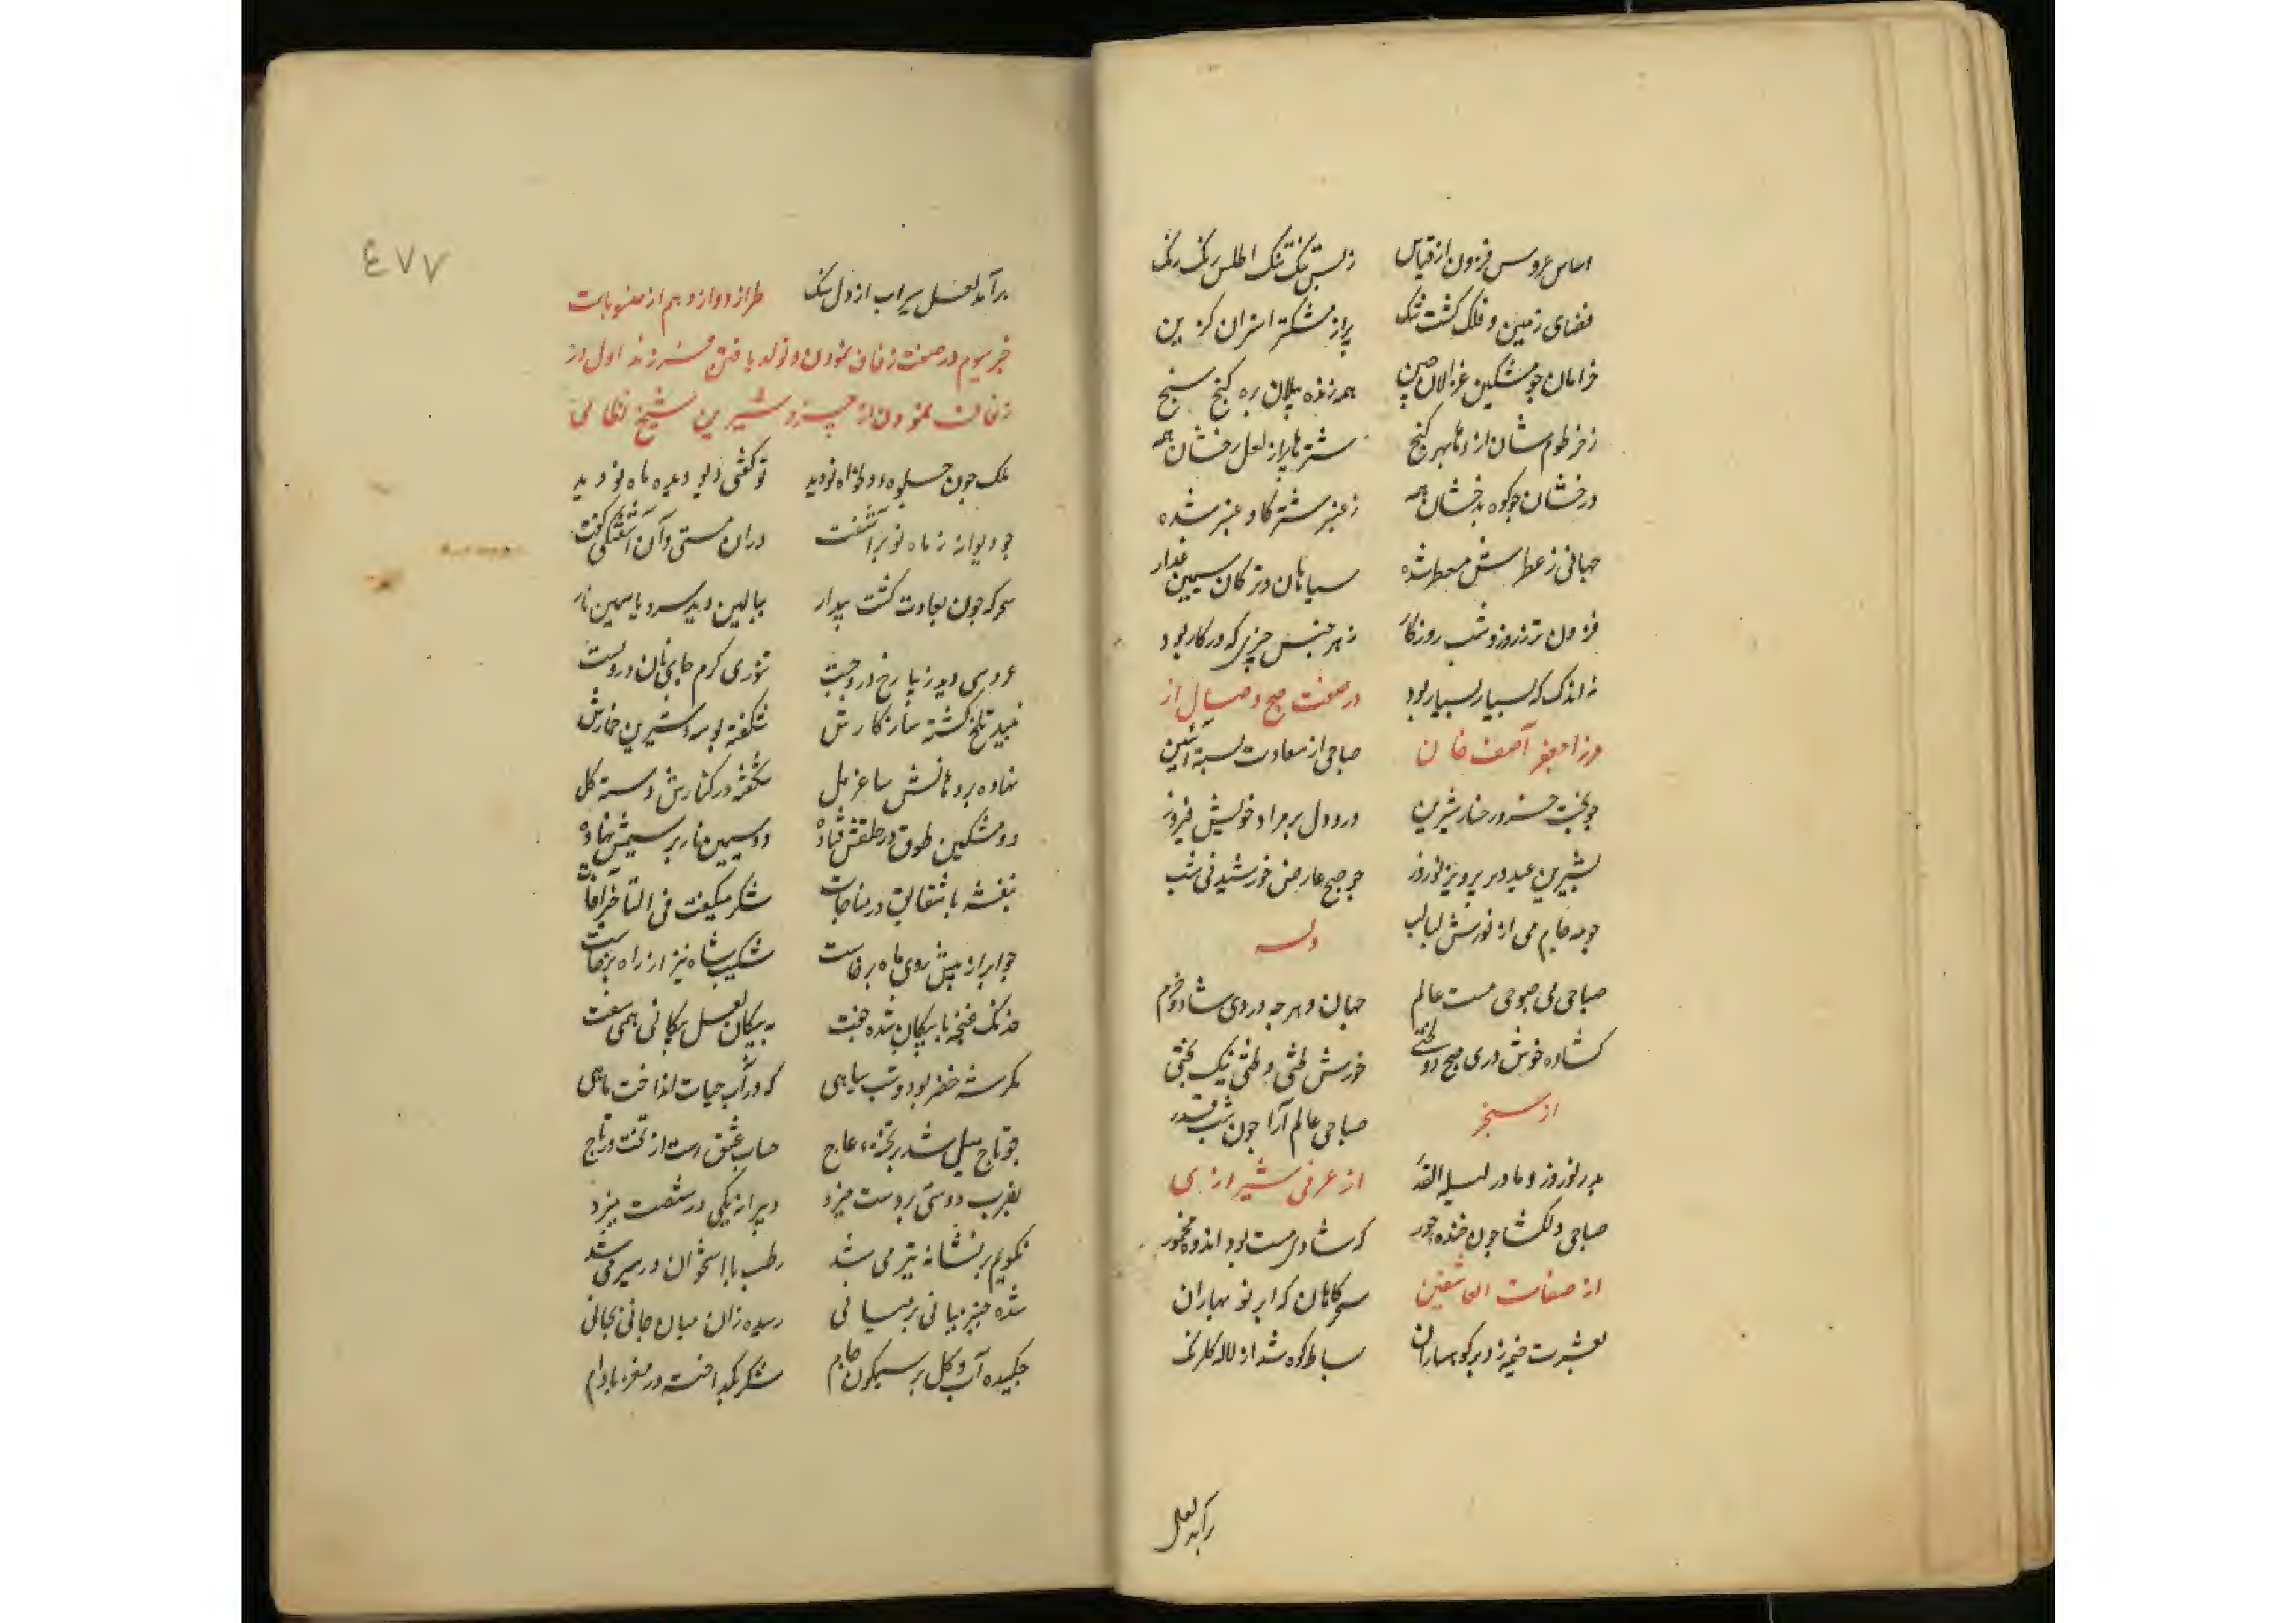 اساس عروسی فزون از قیاس
ز بس تنگ تنگ اطلس رنگ رنگ
فضای زمین و فلک گشت تنگ
پر از مشک تر استران گزین
خرامان چو مشکین غزالان چین
همه زنده پیلان بره گنج سنج
ز خرطوم شان اژدها بهر گنج
شترها پر از لعل رخشان همه
درخشان چو کوه بدخشان همه
ز عنبر شتر گاو عنبر شده
جهانی ز عطرش معطر شده
سیاهان و ترکان سیمین عذار
فزون تر ز روز و شب روزگار
ز هر جنس چیزی که در کار بود
نه اندک که بسیار بسیار بود
در صفت صبح وصال از
میرزا جعفر آصف خان
صباحی از سعادت بسته آئین
چو بخت خسرو رخسار شیرین
درو دل بر مراد خویش فیروز
بشیرین عید و بر پرویز نوروز
چو صبح عارض خورشید فی شب
چو مه جام می از نورش لبالب
وله
صباحی می صبوحی مست عالم
جهان و هر چه در وی شاد و خرم
کشاده خوش دری صبح دو لختی
خورش لختی و لختی نیک بختی
از سنجر
صباحی عالم آرا چون شب قدر
پدر نوروز و مادر لیلة القدر
از عرفی شیرازی
صباحی دلکشا چون خنده حور
که شادی مست بود اندوه مخمور
از صفات العاشقین
سحرگاهان که ابر نو بهاران
بعشرت خیمه زد بر کوهساران
بساط کوه شد از لاله گلرنگ
برآمد لعل
٤٧٧
برآمد لعل سیراب از دل سنگ
طراز دوازدهم از منسوبات
خبر سیوم در صفت زفاف نمودن و تولد یافتن فرزند اول از
زفاف نمودن از خسرو شیرین شیخ نظامی
ملک چون جلوه دلخواه نو دید
تو گفتی دیو دیده ماه نو دید
چو دیوانه ز ماه نو برآشفت
دران مستی و آن آشفتگی خفت
سحرگه چون بعادت گشت بیدار
ببالین دید سرو یاسمین نار
عروسی دید زیبا رخ درو چست
تنوری گرم جای نان درو بست
نبید تلخ گشته سازگارش
شکفته بوسه شیرین خمارش
نهاده بر دهانش ساغر مل
شکفته در کنارش دسته گل
دو مشکین طوق در حلقش فتاده
دو سیمین نار بر سیمش نهاده
بنفشه با شقایق در مناجات
شکر میگفت فی التأخیر آفات
چو ابر از پیش روی ماه برخاست
شکیب شاه نیز از راه برخاست
خدنگ غنچه با پیکان شده جفت
به پیکان لعل پیکانی همی سفت
مگر شه خضر بود و شب سیاهی
که در آب حیات انداخت ماهی
چو تاج میل شد بر تخته عاج
حساب عشق رست از تخت و تاج
بضرب دوستی بر دست میزد
دبیرانه یکی در شصت میزد
نگویم بر نشانه تیر می شد
رطب با استخوان در سیر می شد
شده چنبر میانی بر میانی
رسیده زان میان جانی بجانی
چکیده آب گل بر سیمگون جام
شکر بگداخته در مغز بادام